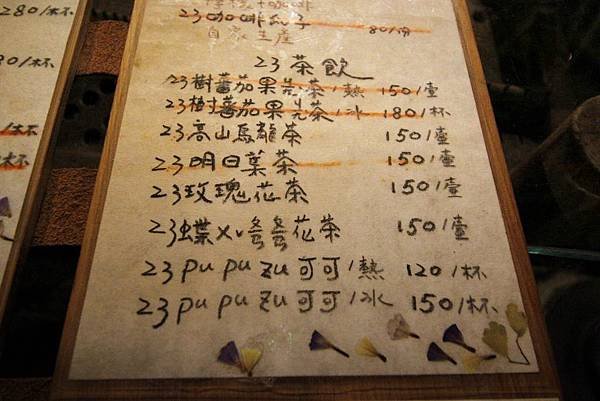 280/杯
/杯
/杯
23咖啡瓜子 80/份
自家生產
23茶飲
23樹蕃茄果羌茶/熱 150/壺
23樹蕃茄果羌茶/冰 180/杯
23高山烏龍茶 150/壺
23明日葉茶 150/壺
23玫瑰花茶 150/壺
23蝶XV蚤蚤花茶 150/壺
23pu pu zu可可/熱 120/杯
23pu pu zu可可/冰 150/杯